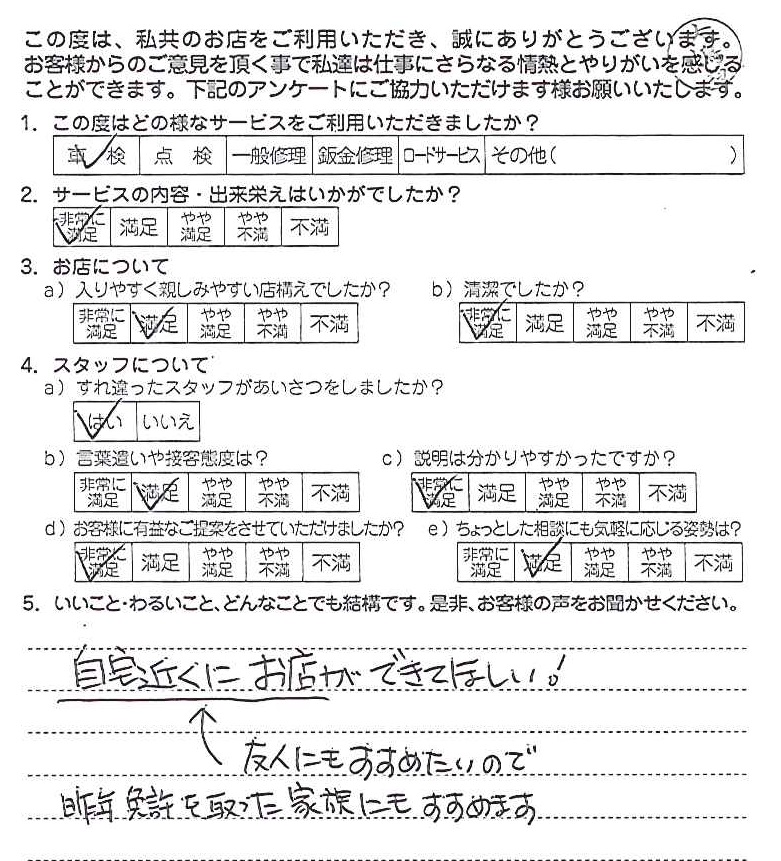 この度は、私共のお店をご利用いただき、誠にありがとうございます。
お客様からのご意見を頂く事で私達は仕事にさらなる情熱とやりがいを感じる
ことができます。下記のアンケートにご協力いただけます様お願いいたします。
1. この度はどの様なサービスをご利用いただきましたか？
車 検 点 検 一般修理 鈑金修理 ロードサービス その他( )
2. サービスの内容・出来栄えはいかがでしたか？
非常に満足 満足 やや満足 やや不満 不満
3. お店について
a）入りやすく親しみやすい店構えでしたか？ b）清潔でしたか？
非常に満足 満足 やや満足 やや不満 不満 非常に満足 満足 やや満足 やや不満 不満
4. スタッフについて
a）すれ違ったスタッフがあいさつをしましたか？
はい いいえ
b）言葉遣いや接客態度は？ c）説明は分かりやすかったですか？
非常に満足 満足 やや満足 やや不満 不満 非常に満足 満足 やや満足 やや不満 不満
d）お客様に有益なご提案をさせていただけましたか？ e）ちょっとした相談にも気軽に応じる姿勢は？
非常に満足 満足 やや満足 やや不満 不満 非常に満足 満足 やや満足 やや不満 不満
5. いいこと・わるいこと、どんなことでも結構です。是非、お客様の声をお聞かせください。
自宅近くにお店ができてほしい！
友人にもすすめたいので
昨年免許を取った家族にもすすめます